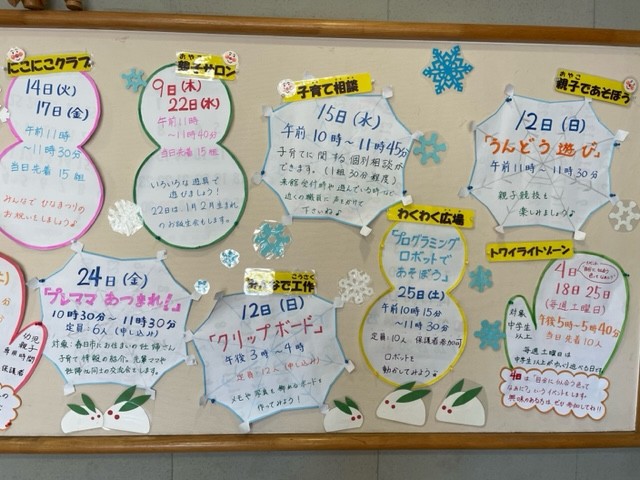 にこにこクラブ
14日(火)
17日(金)
午前11時
~11時30分
当日先着 15組
みんなで ひなまつりの
お祝いをしましょう♪
おやこ
親子サロン
9日(木)
22日(水)
午前11時
~11時40分
当日先着 15組
いろいろな遊具で
遊びましょう!
22日は 1月2月生まれ
のお誕生会もします。
子育て相談
15日(水)
午前10時~11時45分
子育てに関する個別相談が
できます。(1組30分程度)
来館受付時や遊んでいる時など
近くの職員に声をかけて
下さいね♪
おやこ
親子であそぼう
12日(日)
「うんどう遊び」
午前11時~11時30分
親子競技を
楽しみましょう♪
24日(金)
「プレママ あつまれ!」
10時30分~11時30分
定員:6人(申し込み)
対象:春日市にお住まいの妊婦さん
子育て情報の紹介、先輩ママや
妊婦さん同士の交流をします。
こうさく
みんなで工作
12日(日)
「クリップボード」
午後3時~4時
定員:12人(申し込み)
メモや写真を飾れるボードを
作ってみよう!
わくわく広場
「プログラミング
ロボットで
あそぼう」
25日(土)
午前10時15分
~11時30分
定員:10人 保護者参加可
ロボットを
動かしてみよう♪
トワイライトゾーン
4日
18日 25日
(毎週土曜日)
午後5時~5時40分
当日先着10人
対象:
中学生
以上
毎週土曜日は
中学生以上が利用できる日です
幼児
親子
専用時間
保護者